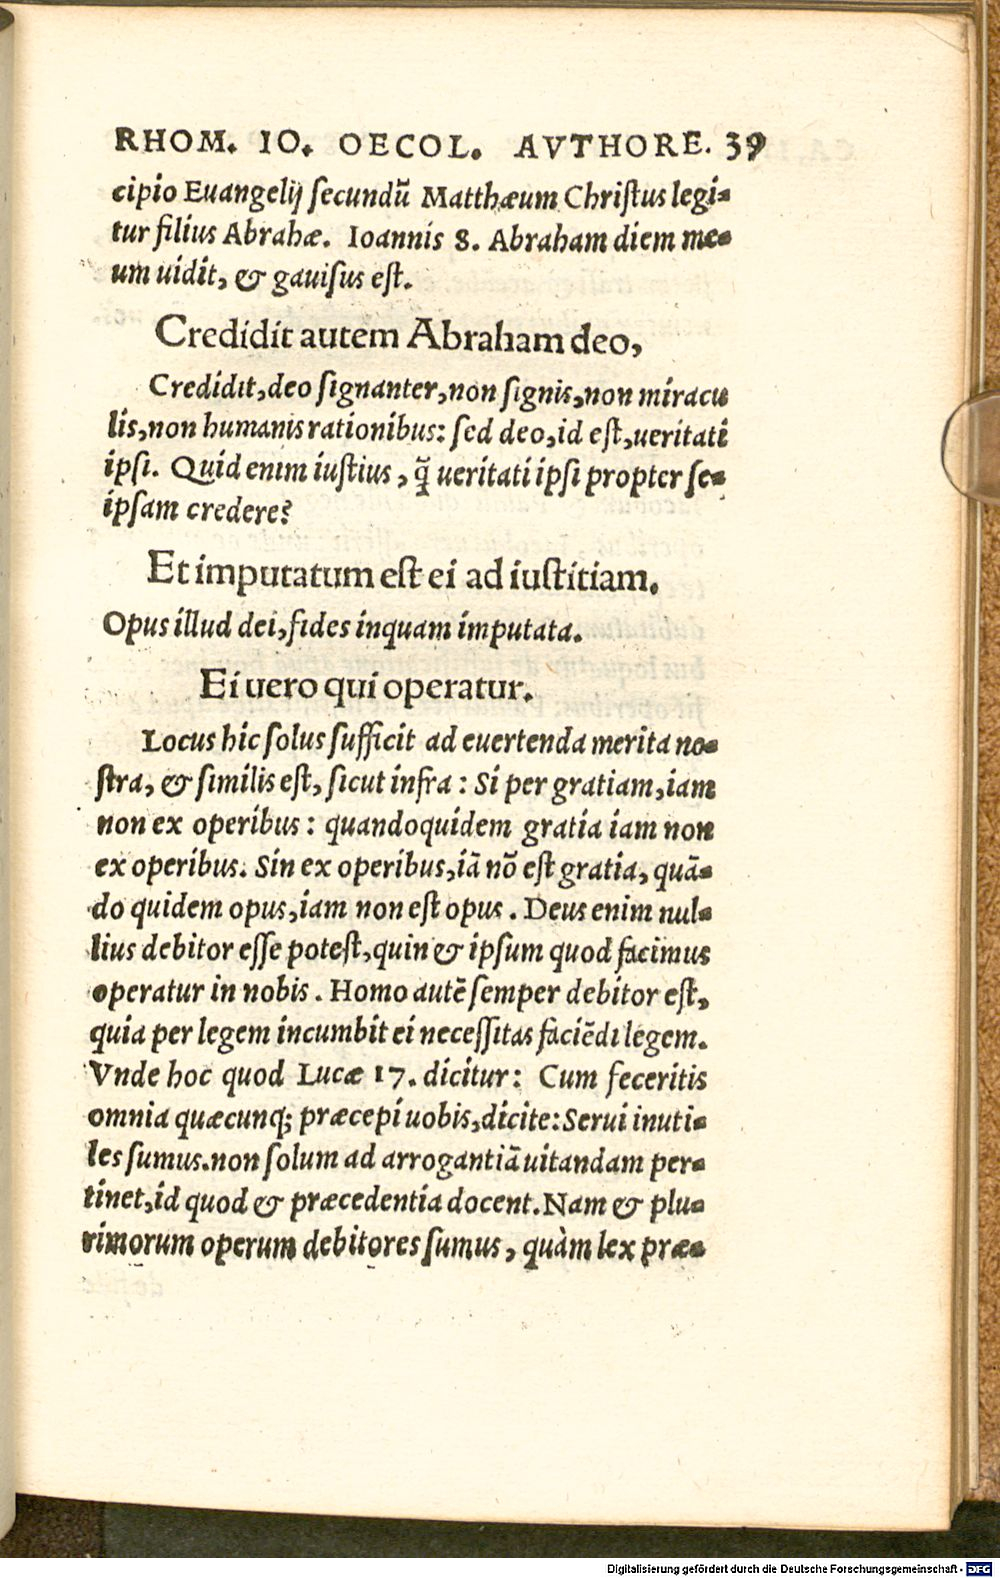 RHOM. IO. OECOL. AVTHORE. 39
cipio Euangelij ſecundũ Matthæum Chriſtus legi-
tur filius Abrahæ. Ioannis 8. Abraham diem me-
um uidit, & gauiſus eſt.
Credidit autem Abraham deo,
Credidit, deo ſignanter, non ſignis, non miracu
lis, non humanis rationibus: ſed deo, id eſt, ueritati
ipſi. Quid enim iuſtius, q̃ ueritati ipſi propter ſe-
ipſam credere?
Et imputatum eſt ei ad iuſtitiam.
Opus illud dei, fides inquam imputata.
Ei uero qui operatur.
Locus hic ſolus ſufficit ad euertenda merita no-
ſtra, & ſimilis eſt, ſicut infra: Si per gratiam, iam
non ex operibus: quandoquidem gratia iam non
ex operibus. Sin ex operibus, iã nõ eſt gratia, quã-
do quidem opus, iam non eſt opus. Deus enim nul-
lius debitor eſſe poteſt, quin & ipſum quod facimus
operatur in nobis. Homo autẽ ſemper debitor eſt,
quia per legem incumbit ei neceſſitas faciẽdi legem.
Vnde hoc quod Lucæ 17. dicitur: Cum feceritis
omnia quæcunq; præcepi uobis, dicite: Serui inuti-
les ſumus. non ſolum ad arrogantiã uitandam per-
tinet, id quod & præcedentia docent. Nam & plu-
rimorum operum debitores ſumus, quàm lex præ-
Digitalisierung gefördert durch die Deutsche Forschungsgemeinschaft - DFG